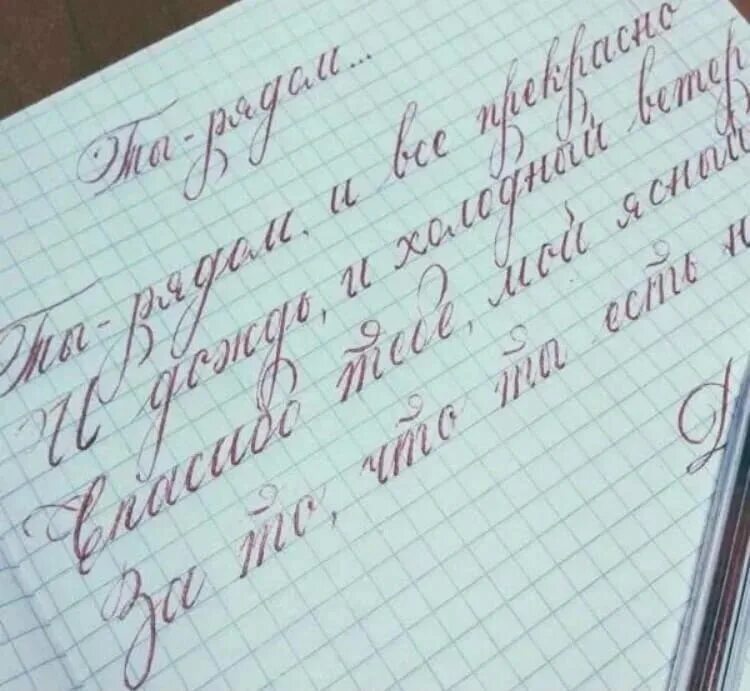 Ты - рядом...
Ты - рядом, и все прекрасно
И дождь, и холодный ветер
Спасибо тебе, мой ясный
За то, что ты есть н